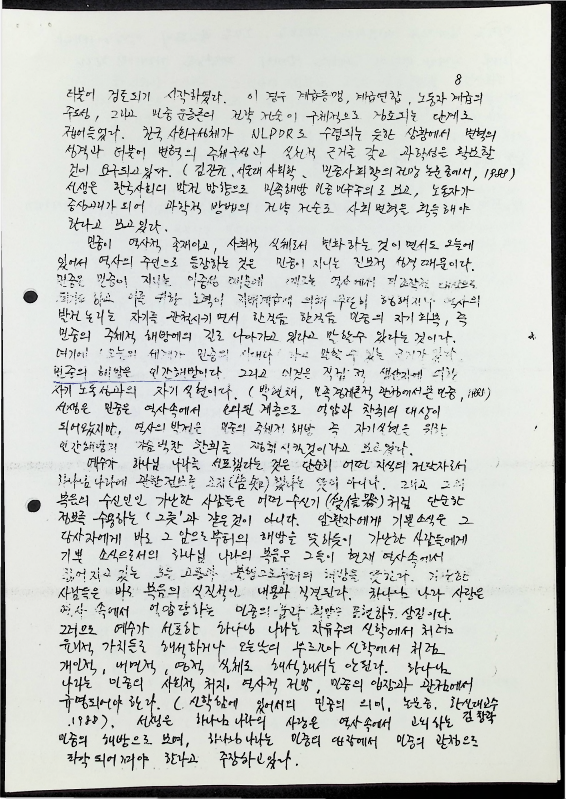 8
더불어 검토되기 시작하였다. 이 경우 계급동맹, 계급연합, 노동자 계급의
주도성, 그리고 민중운동론의 전략 전술이 구체적으로 검토되는 단계로
접어들었다. 한국 사회구성체가 NLPDR로 수렴되는 듯한 상황에서 변혁의
성격과 더불어 변혁의 주체구성과 실천적 근거를 갖고 과학성은 확보할
것이 요구되고 있다. ( 서울대 사회학, 민중사회학의 논문중에서, 1988)
선생은 한국사회의 발전 방향으로 민족해방 민중민주주의로 보고, 노동자가
중심고리가 되어 과학적 방법의 전략 전술로 사회변혁을 획득해야
한다고 보고있다.
민중이 역사적 존재이고, 사회적 실체로서 변화하는 것이면서도 오늘에
있어서 역사의 주인으로 등장하는 것은 민중이 지니는 진보적 성격 때문이다.
민중은 민중이 지니는 이중성 때문에 역사에서
되기도 하고 이를 위한 노력이 의해 역사의
발전논리는 자기를 관철시키면서 한걸음 한걸음 민중의 자기회복, 즉
민중의 주체적 해방에의 길로 나아가고 있다고 말할수 있다는 것이다.
여기에 (오늘의 세계가 민중의 시대다) 하고 말할수 있는 근거가 있다.
민중의 해방은 인간해방이다. 그리고 이것은 직접적 생산자에 의한
자기 노동성과의 자기실현이다. (박현채, 민족경제론적 관점에서 본 민중,
선생은 민중은 역사속에서 소외된 계층으로 억압과 착취의 대상이
되어왔지만, 역사의 발전은 민중의 주체적 해방 즉 자기실현을 위한
인간해방의 가슴벅찬 환희를 보고있다.
예수가 하나님 나라를 선포했다는 것은 단순히 어떤 지식의 전달자로서
하나님 나라에 관한 정보를 했다는 뜻이 아니다. 그리고 그의
복음의 수신인인 가난한 사람들은 어떤 수신기(受信器)처럼 단순한
정보를 수용하는 '그릇'과 같은것이 아니다. 기쁜소식은 그
당사자에게 바로 그 압으로부터의 해방을 뜻하듯이 가난한 사람들에게
기쁜 소식으로서의 하나님 나라의 복음은 그들이 현재 역사속에서
겪어지고 있는 모든 고통과 불행으로부터의 해방을 뜻한다. 가난한
사람들은 바로 복음의 실질적인 내용과 직결된다. 하나님 나라 사상은
역사 속에서 억압당하는 민중의 꿈과 희망을 표현하는 상징이다.
그러므로 예수가 선포한 하나님 나라는 자유주의 신학에서 처럼
윤리적 가치들로 해석하거나 오늘날의 부르조아 신학에서 처럼
개인적, 내면적, 영적, 실체로 해석해서는 안된다. 하나님
나라는 민중의 사회적 처지, 역사적 전망, 민중의 입장과 관점에서
규명되어야 한다. (신학함에 있어서의 민중의 의미, 논문중. 한신대교수
1988). 선생은 하나님 나라의 사상은 역사속에서 고뇌하는
민중의 해방으로 보며, 하나님나라는 민중의 입장에서 민중의 관점으로
파악되어져야 한다고 주장하고있다.